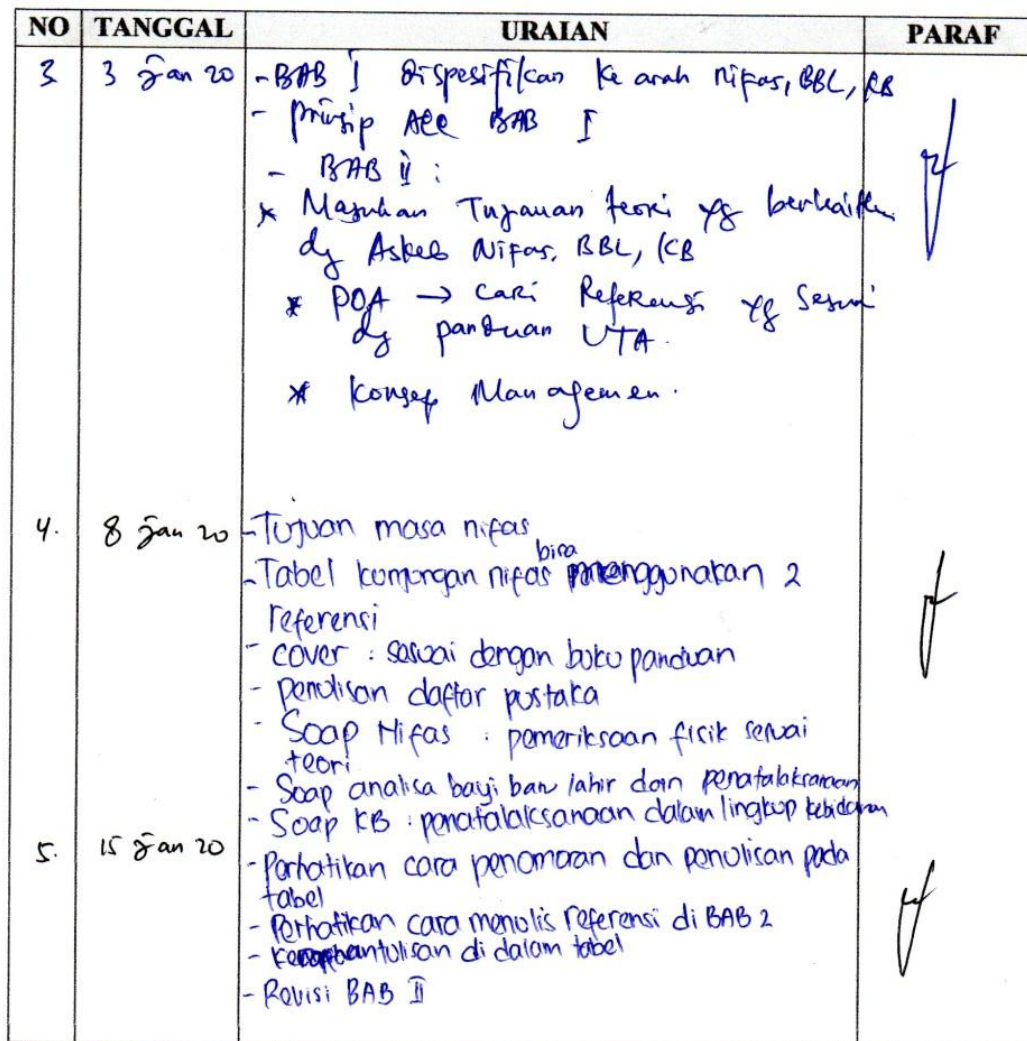 NO TANGGAL URAIAN PARAF
3 3 Jan 20 - BAB I Dispesifikan ke arah nifas, BBL, KB
- prinsip Acc BAB I
- BAB II :
* Masukan Tinjauan teori yg berkaitan
dg Askeb Nifas, BBL, KB
* POA → Cari Referensi yg Sesuai
dg panduan UTA.
* Konsep Managemen.
4. 8 Jan 20 - Tujuan masa nifas
bisa
- Tabel kunjungan nifas menggunakan 2
referensi
- cover : sesuai dengan buku panduan
- penulisan daftar pustaka
- Soap Nifas : pemeriksaan fisik sesuai
teori
- Soap analisa bayi baru lahir dan penatalaksanaan
- Soap KB : penatalaksanaan dalam lingkup kebidanan
5. 15 Jan 20
- Perhatikan cara penomoran dan penulisan pada
tabel
- Perhatikan cara menulis referensi di BAB 2
- di dalam tabel
- Revisi BAB II